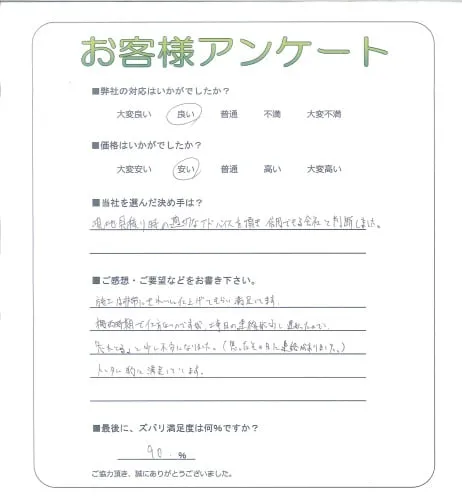 お客様アンケート
■弊社の対応はいかがでしたか?
大変良い 良い 普通 不満 大変不満
■価格はいかがでしたか?
大変安い 安い 普通 高い 大変高い
■当社を選んだ決め手は?
現地見積り時の適切なアドバイスを頂き 信用できる会社と判断しました。
■ご感想・ご要望などをお書き下さい。
施工は非常にきれいに仕上げてもらい満足してます。
梅雨時期で仕方ないのですが、工事日の連絡が少し遅れたので、
と少し不安になりました。(その日に連絡がありました。)
トータル的に満足しています。
■最後に、ズバリ満足度は何%ですか?
90.%
ご協力頂き、誠にありがとうございました。